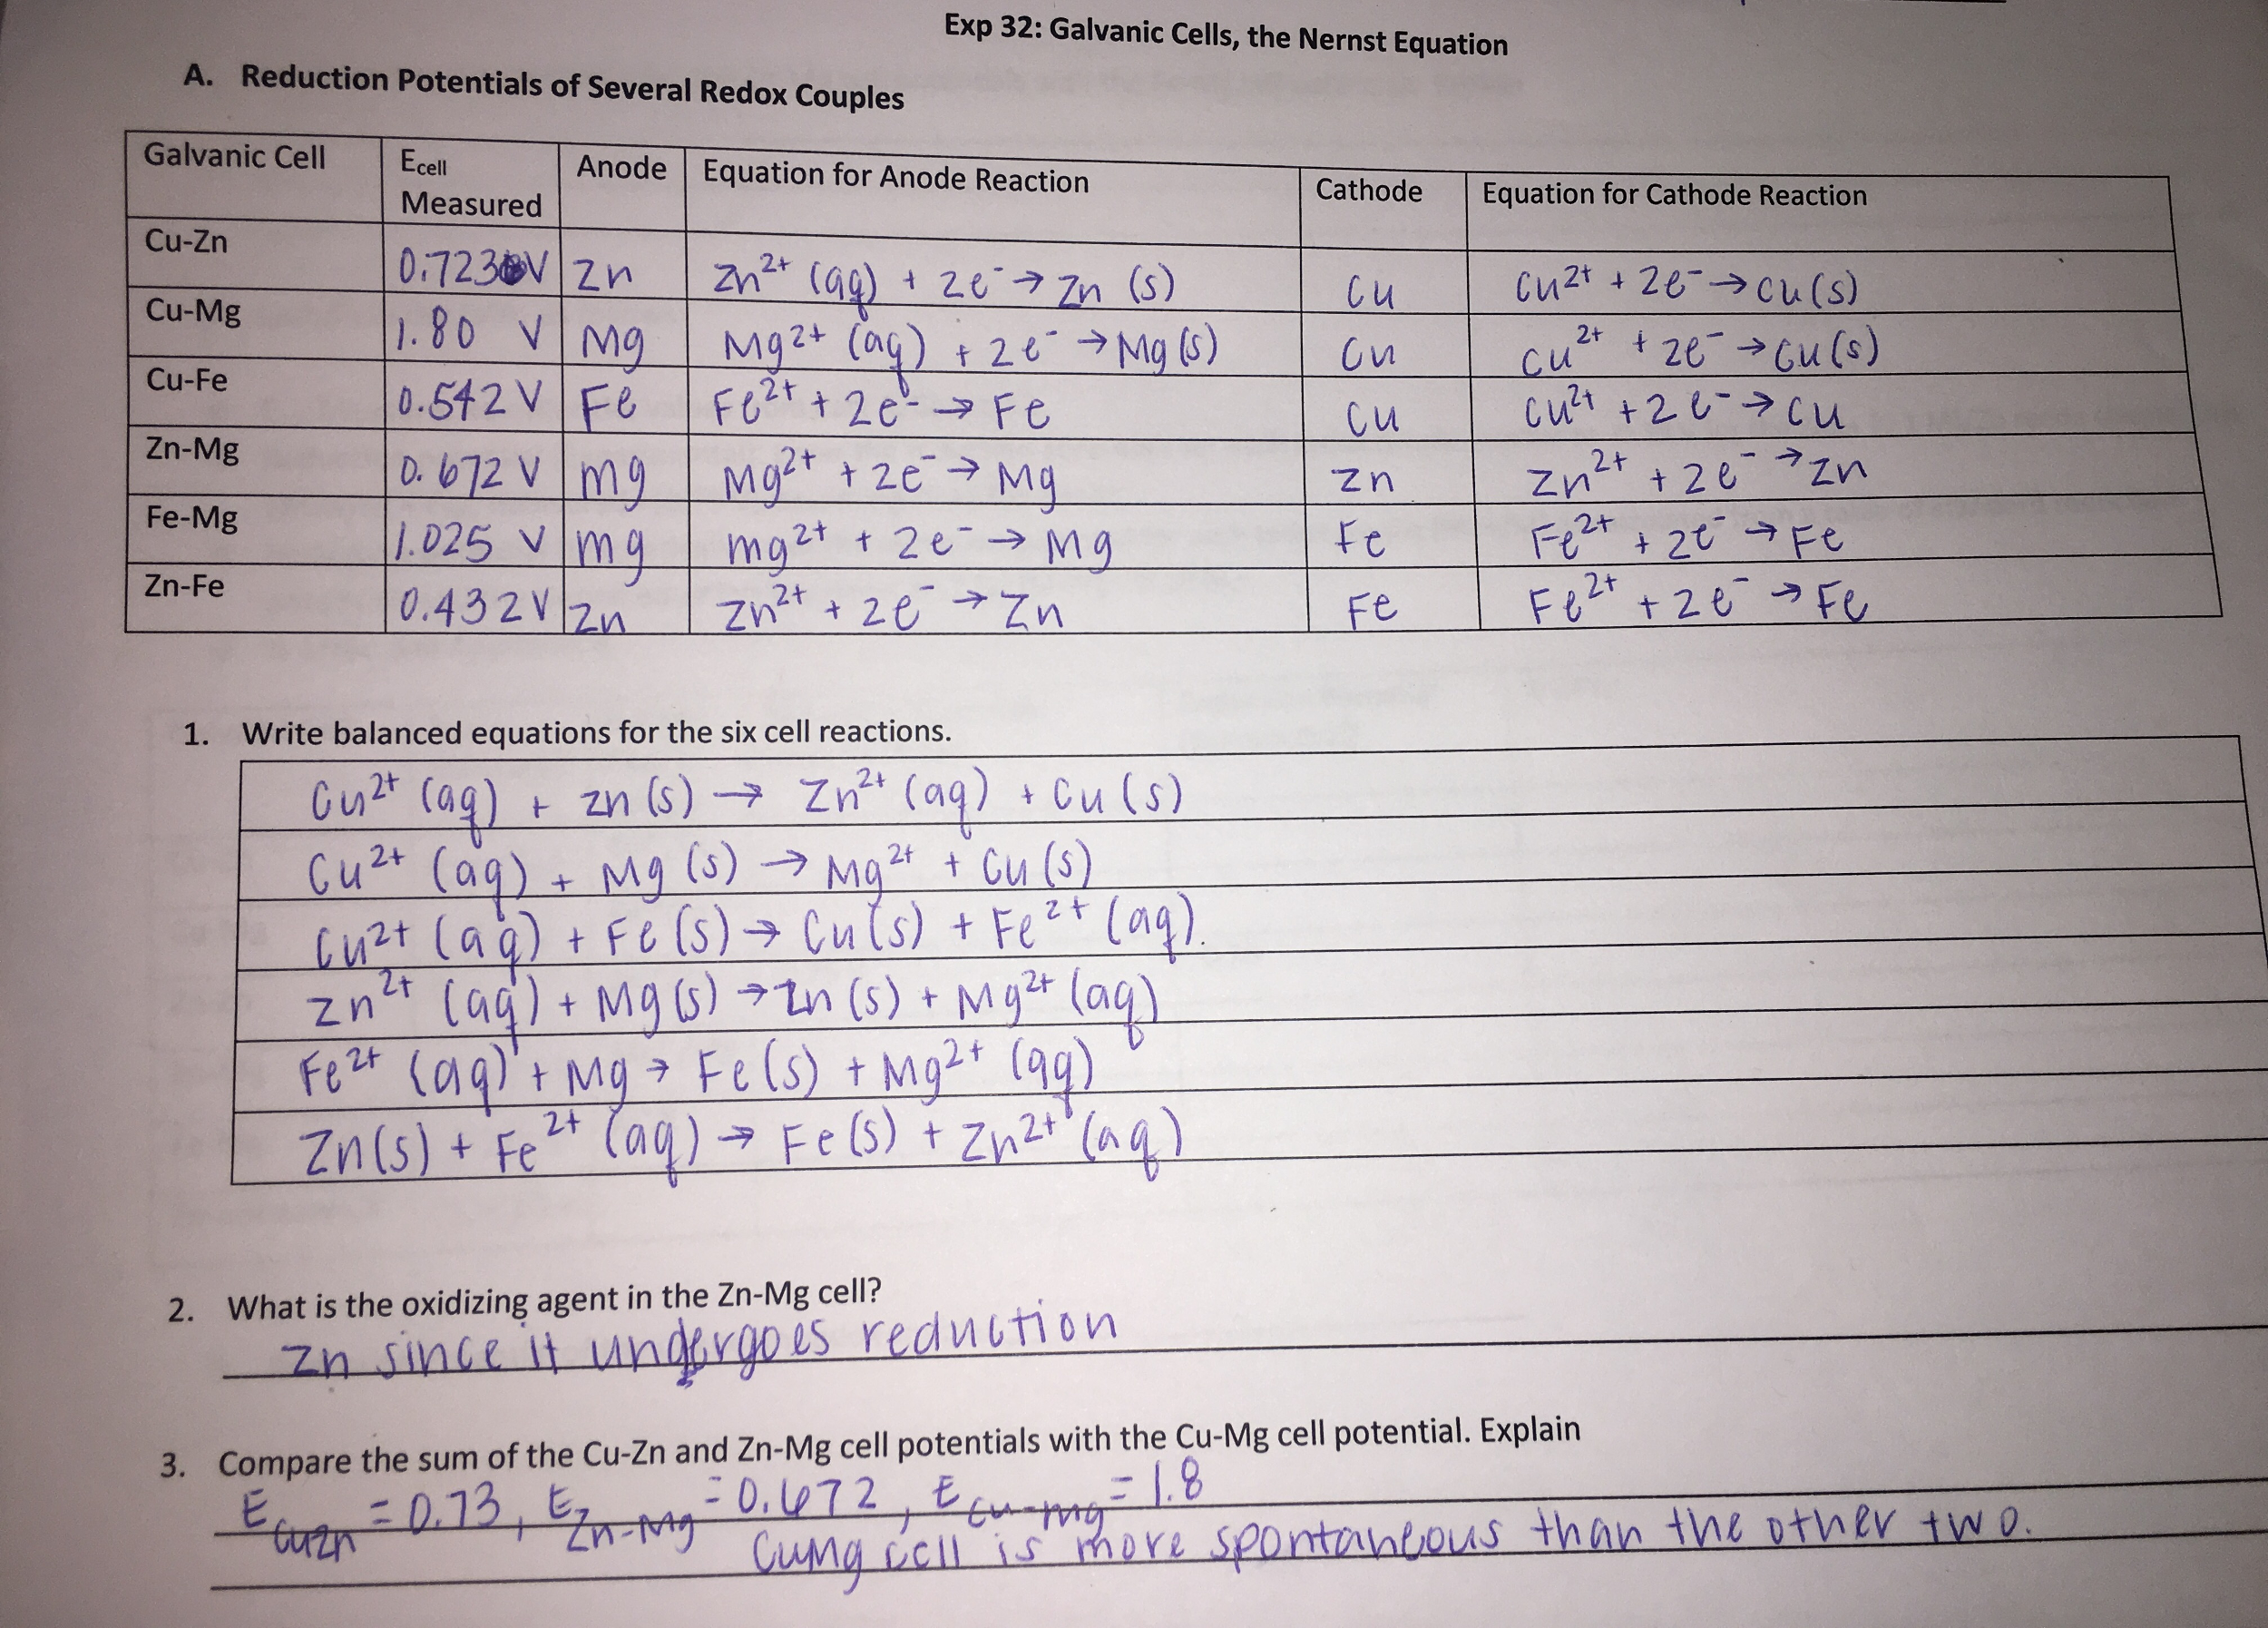 Exp 32: Galvanic Cells, the Nernst Equation
A. Reduction Potentials of Several Redox Couples
Galvanic Cell Ecell Measured Anode Equation for Anode Reaction Cathode Equation for Cathode Reaction
Cu-Zn 0.723 V Zn Zn²⁺ (aq) + 2e⁻ → Zn (s) Cu Cu²⁺ + 2e⁻ → Cu(s)
Cu-Mg 1.80 V Mg Mg²⁺ (aq) + 2e⁻ → Mg(s) Cu Cu²⁺ + 2e⁻ → Cu(s)
Cu-Fe 0.542 V Fe Fe²⁺ + 2e⁻ → Fe Cu Cu²⁺ + 2e⁻ → Cu
Zn-Mg 0.672 V mg Mg²⁺ + 2e⁻ → Mg Zn Zn²⁺ + 2e⁻ → Zn
Fe-Mg 1.025 V mg mg²⁺ + 2e⁻ → Mg Fe Fe²⁺ + 2e⁻ → Fe
Zn-Fe 0.432V Zn Zn²⁺ + 2e⁻ → Zn Fe Fe²⁺ + 2e⁻ → Fe
1. Write balanced equations for the six cell reactions.
Cu²⁺ (aq) + Zn (s) → Zn²⁺ (aq) + Cu (s)
Cu²⁺ (aq) + Mg (s) → Mg²⁺ + Cu (s)
Cu²⁺ (aq) + Fe (s) → Cu (s) + Fe²⁺ (aq).
Zn²⁺ (aq) + Mg (s) → Zn (s) + Mg²⁺ (aq)
Fe²⁺ (aq) + Mg → Fe (s) + Mg²⁺ (aq)
Zn(s) + Fe²⁺ (aq) → Fe (s) + Zn²⁺ (aq)
2. What is the oxidizing agent in the Zn-Mg cell?
Zn since it undergoes reduction
3. Compare the sum of the Cu-Zn and Zn-Mg cell potentials with the Cu-Mg cell potential. Explain
E CuZn = 0.73, E Zn-Mg = 0.672, E Cu-Mg = 1.8
CuMg cell is more spontaneous than the other two.